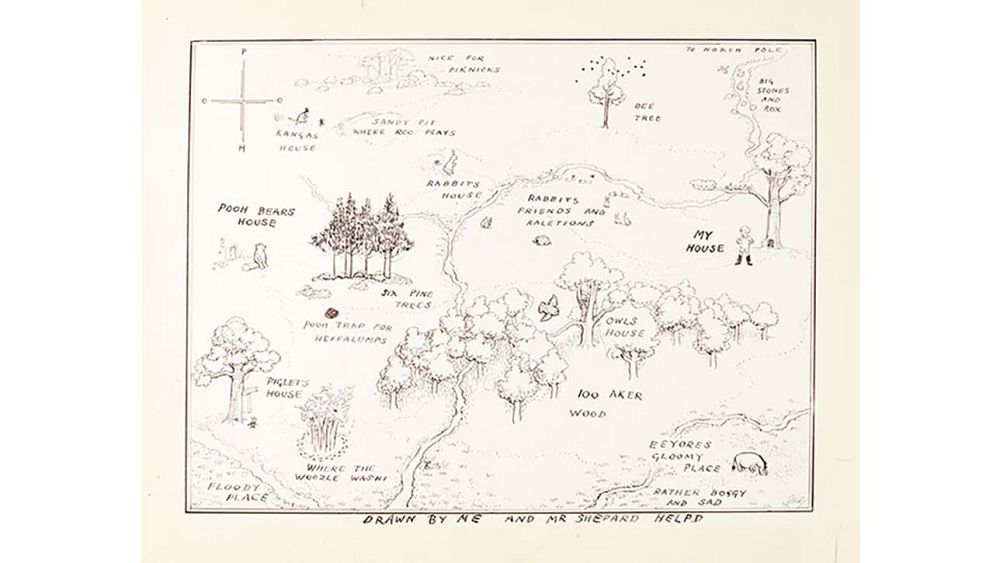 P
TO NORTH POLE
NICE FOR
PIKNICKS
BIG
STONES
AND
ROX
BEE
TREE
O
O
H
SANDY PIT
WHERE ROO PLAYS
KANGAS
HOUSE
RABBITS
HOUSE
RABBITS
FRIENDS AND
RALETIONS
POOH BEARS
HOUSE
MY
HOUSE
SIX PINE
TREES
POOH TRAP FOR
HEFFALUMPS
OWLS
HOUSE
PIGLETS
HOUSE
100 AKER
WOOD
EEYORES
GLOOMY
PLACE
WHERE THE
WOOZLE WASNT
FLOODY
PLACE
RATHER BOGGY
AND SAD
DRAWN BY ME AND MR SHEPARD HELPD